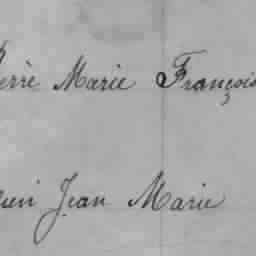 Pierre Marie François
Jean Marie